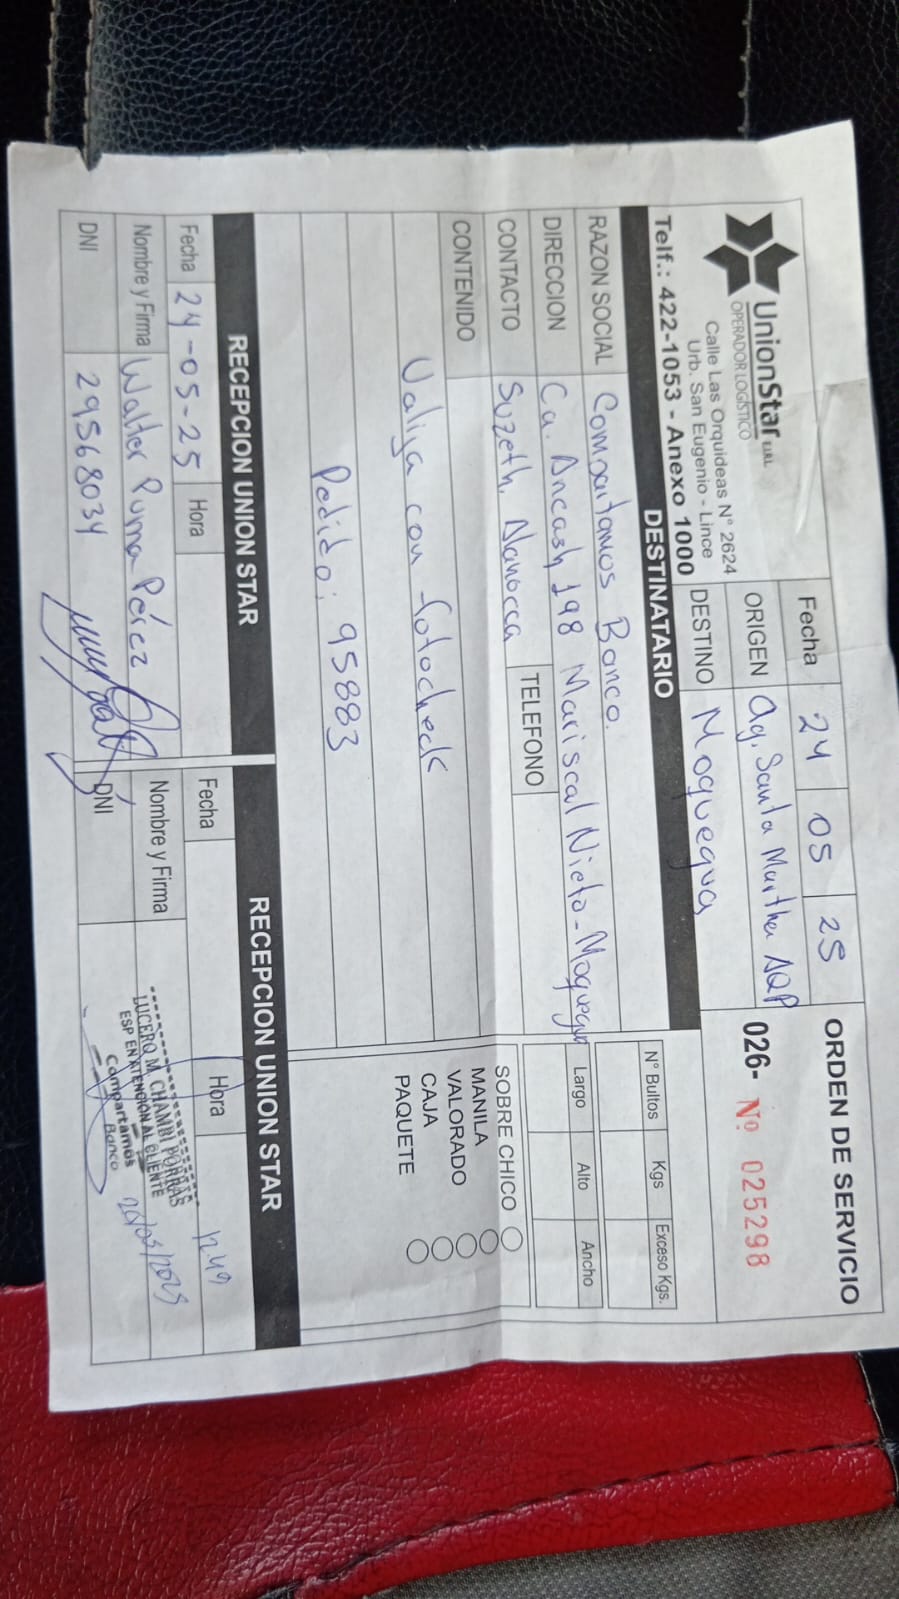 UnionStar E.I.R.L
OPERADOR LOGÍSTICO
Calle Las Orquideas N° 2624
Urb. San Eugenio - Lince
Telf.: 422-1053 - Anexo 1000
Fecha 24 05 25
ORIGEN Ag. Santa Martha AQP
DESTINO Moquegua
ORDEN DE SERVICIO
026- Nº 025298
DESTINATARIO
RAZON SOCIAL Compartamos Banco.
DIRECCION Ca. Ancash 198 Mariscal Nieto - Moquegua
CONTACTO Suzeth
TELEFONO
CONTENIDO
Valija con fotocheck
Pedido: 95883
N° Bultos Kgs Exceso Kgs.
Largo Alto Ancho
SOBRE CHICO
MANILA
VALORADO
CAJA
PAQUETE
RECEPCION UNION STAR
Fecha 24-05-25 Hora
Nombre y Firma Walter Puma Pérez
DNI 29568034
RECEPCION UNION STAR
Fecha Hora
Nombre y Firma
DNI
LUCERO M. CHAMBI PORRAS
ESP EN ATENCION AL CLIENTE
Compartamos
Banco